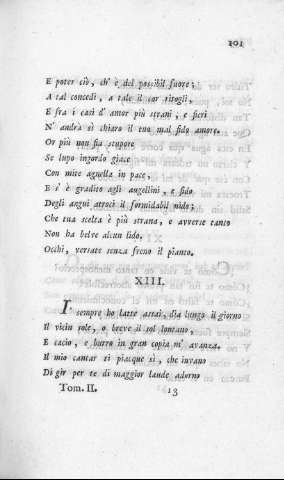 101
E poter ciò, ch' è del possibil fuore;
A tal concedi, a tale il cor ritogli,
E fra i casi d' amor più strani, e fieri
N' andrà sì chiaro il tuo mal fido amore.
Or più non fia stupore
Se lupo ingordo giace
Con mite agnella in pace,
E s' è gradito agli augellini, e fido
Degli angui atroci il formidabil nido;
Che tua scelta è più strana, e avverse tanto
Non ha belve alcun lido.
Occhi, versate senza freno il pianto.
XIII.
I' sempre ho latte assai, dia lungo il giorno
Il vicin sole, o breve il sol lontano,
E cacio, e burro in gran copia m' avanza.
Il mio cantar ti piacque sì, che invano
Di gir per te di maggior laude adorno
Tom. II. 13